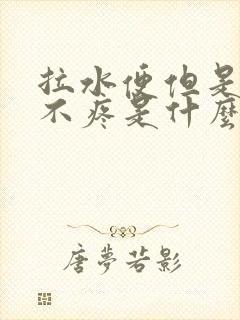 拉水便但是
不疼是什麼
唐夢若影